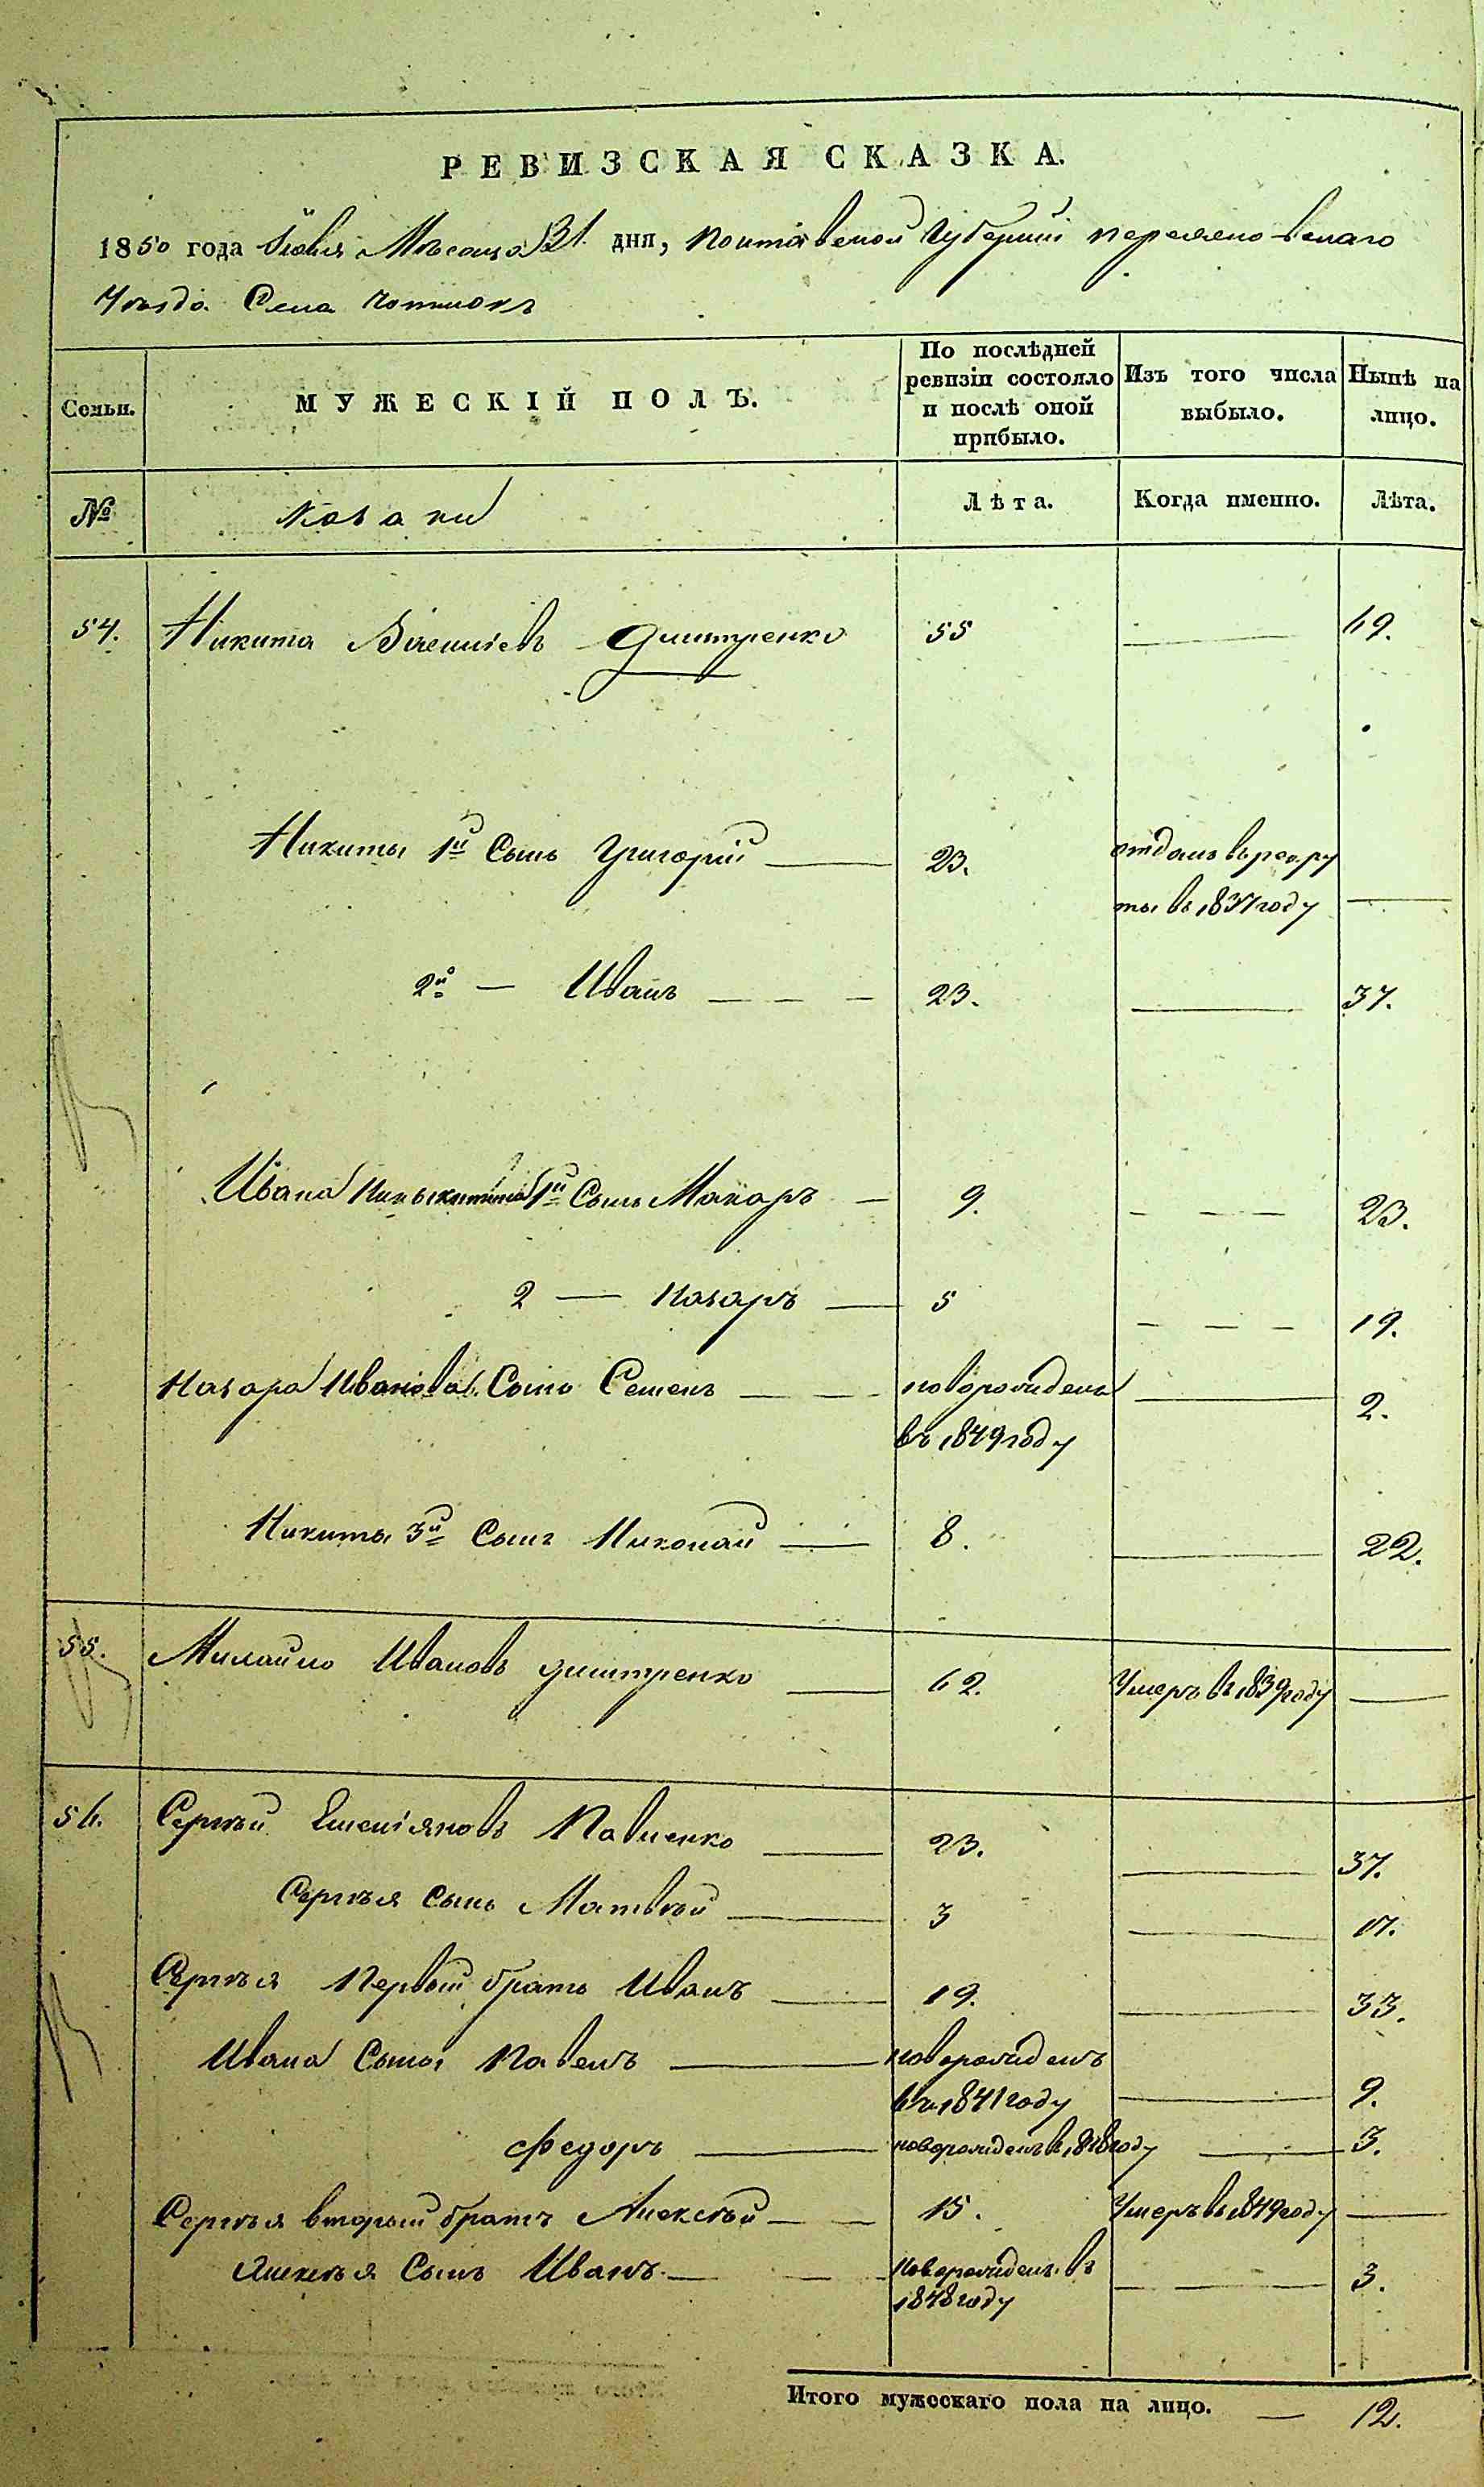 РЕВИЗСКАЯ СКАЗКА.
1850 года Мѣсяца 31 дня, Полтавской Губерніи Переяславскаго
Уѣзда Села
Семьи.
МУЖЕСКІЙ ПОЛЪ.
По послѣдней ревизіи состояло и послѣ оной прибыло.
Изъ того числа выбыло.
Нынѣ на лицо.
№
Козаки
Лѣта.
Когда именно.
Лѣта.
54. Никита Дмитренко 55 — 69.
Никиты 1й Сынъ Григорій — 23. отданъ въ рекру
ты въ 1837 году —
2й — Иванъ — — — 23. — 37.
Ивана 1й Сынъ Макаръ — 9. — — — 23.
2 — Назаръ — 5 — — — 19.
Назара Иванова Сынъ Семенъ — — новорожденъ — 2.
въ 1849 году
Никиты 3й Сынъ Николай — 8. — 22.
55. Михайло Ивановъ Дмитренко — 62. Умеръ въ 1839 году —
56. Сергѣй Емеліяновъ Павленко — 23. — 37.
Сергѣя Сынъ Матвѣй — 3 — 17.
Сергѣя Первый братъ Иванъ — 19. — 33.
Ивана Сыны Павелъ — новорожденъ
въ 1841 году — 9.
Федоръ — новорожденъ въ 1848 году — 3.
Сергѣя второй братъ Алексѣй — — 15. Умеръ въ 1849 году —
Алексѣя Сынъ Иванъ. — — новорожденъ въ — — 3.
1848 году
Итого мужескаго пола на лицо. — 12.